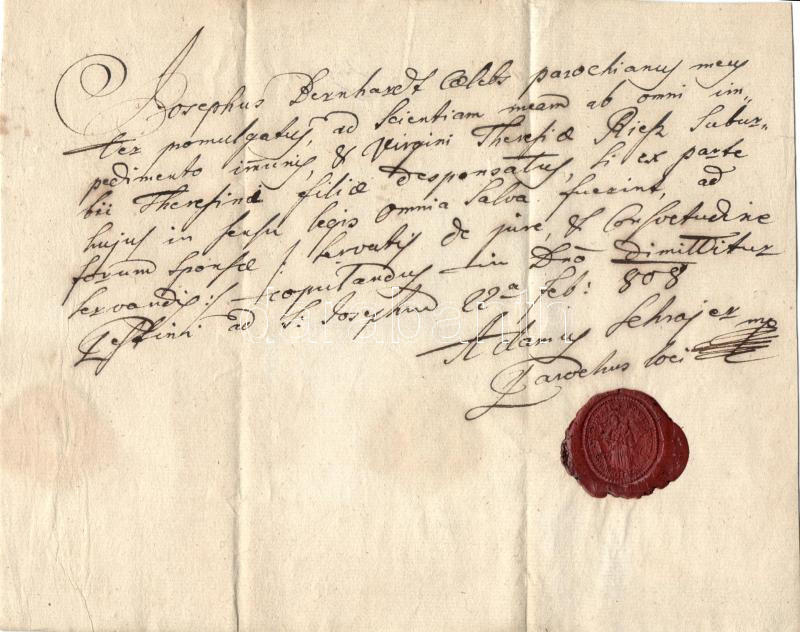 Josephus Bernhardt Cælebs parochianus meus
ter pomulgatus, ad Scientiam meam ab omni im-
pedimento im̄unis, & Virgini Theresiæ Riesz Subur-
bii Theresiæ filiæ desponsatus, si ex parte
hujus in sensu legis omnia Salva fuerint, ad
forum sponsæ / servatis de jure, & Consvetudine
servandis:/ copulandus in Dno dimittitur
Pestini ad S: Josephum 22ª Feb: 808
Adamus Schrajer mp
Parochus loci
darabanth